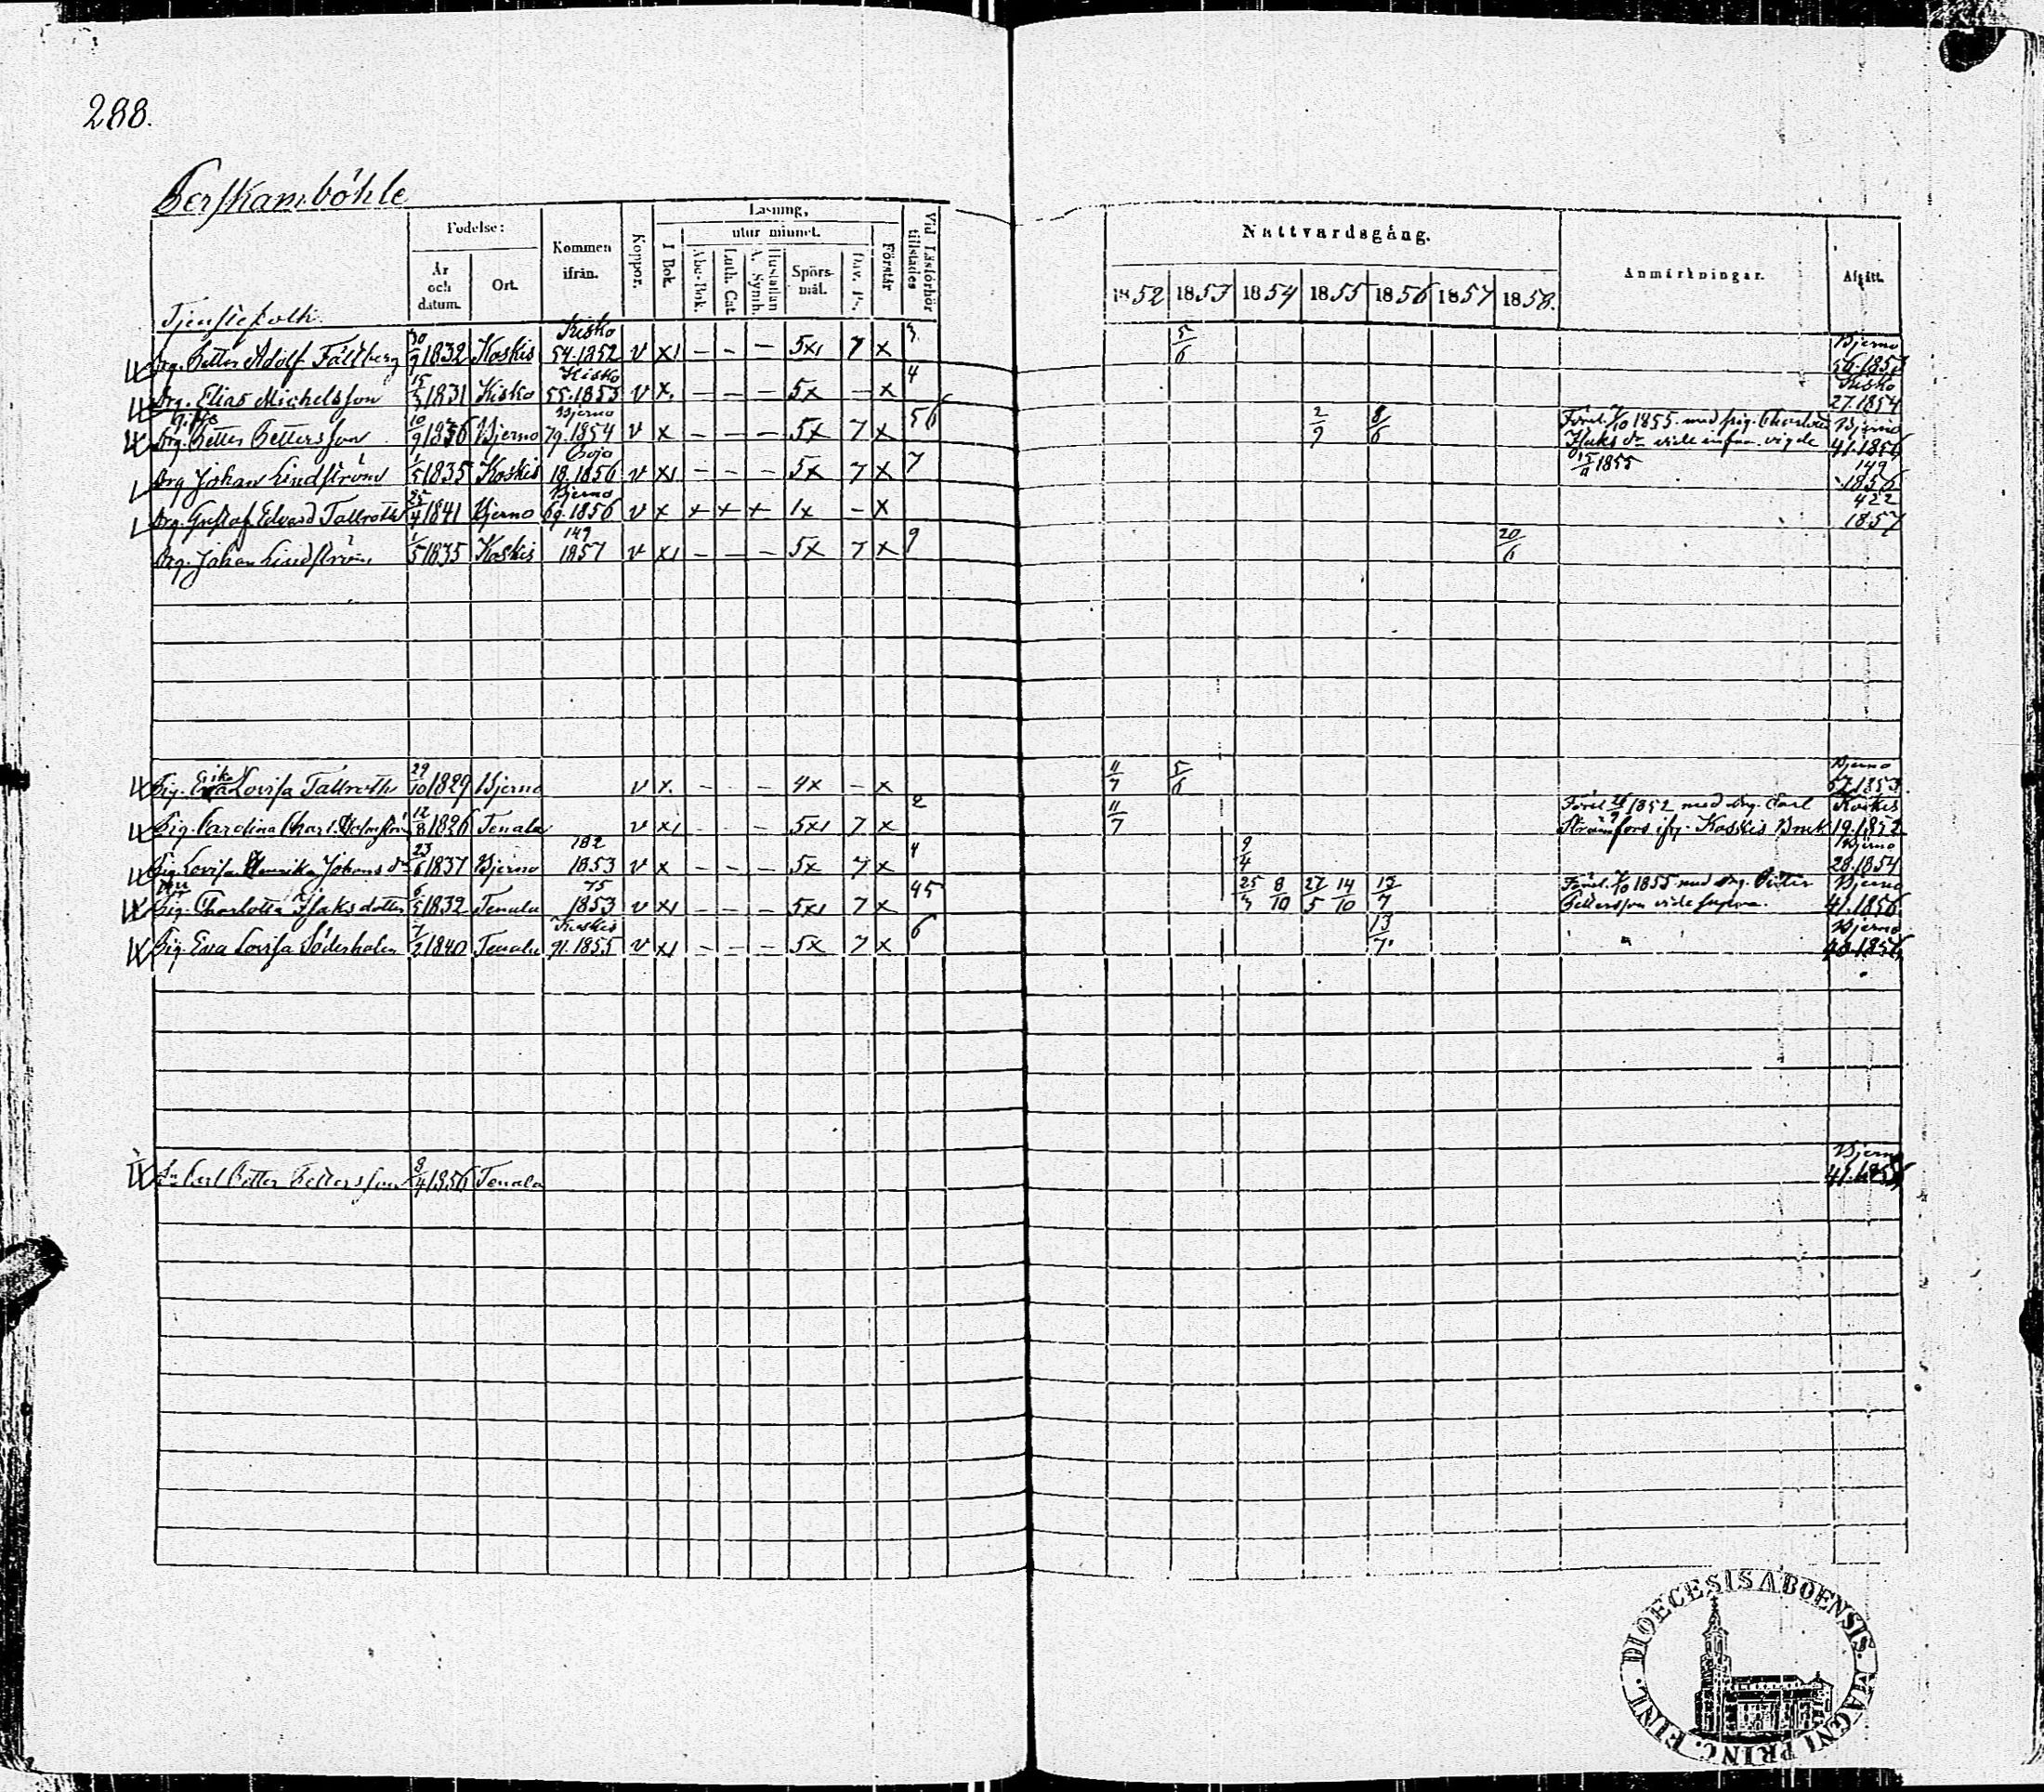 288.
Tjenstefolk.
Födelse:
År och datum.
Ort.
Kommen ifrån.
Koppor.
Läsning,
I Bok.
utur minnet.
Abc-Bok.
Luth. Cat
Hustaflan A. Symb.
Spörsmål.
Dav. Ps.
Förstår
Vid Läsförhör tillstädes
Nattvardsgång.
1852 1853 1854 1855 1856 1857 1858.
Anmärkningar.
Afgått.
Drg. Petter Adolf Fältberg 30/9 1832 Koskis Kisko 54.1852 v x1 – – – 5x1 7 x 3 5/6 Bjerno 56.1853
Drg. Elias Michelsson 1831 Kisko Kisko 55.1853 v x. – – – 5x – x 4 Kisko 27.1854
Drg. Petter Pettersson 10/9 1836 Bjerno Bjerno 79.1854 v x – – – 5x 7 x 56 2/9 8/6 Förel. 1/10 1855 med pig. Charlotta Isaks dr vide infra. vigde 1855 Bjerno 41.1856
Drg. Johan Lindström 1/5 1835 Koskis 18.1856 v x1 – – – 5x 7 x 7 149 1856
Drg. Gustaf Edvard Tallroth 25/4 1841 Bjerno Bjerno 69.1856 v x + + + 1x – x 422 1857
Drg. Johan Lindström 1/5 1835 Koskis 149 1857 v x1 – – – 5x 7 x 9 20/6
Pig. Lovisa Tallroth 29/10 1829 Bjerno v x. – – – 4x – x 11/7 5/6 Bjerno 57.1853
Pig. Carolina Charl. Holmström 12/8 1826 Tenala v x1 – – – 5x1 7 x 2 11/7 Förel. 1852 med drg. Carl Strömfors ifr. Koskis Bruk Koskis 19.1852
Pig. Lovisa Henrika Johans dr 23/6 1837 Bjerno 182 1853 v x – – – 5x 7 x 4 9/4 Bjerno 28.1854
Pig. Charlotta Isaksdotter 6/5 1832 Tenala 75 1853 v x1 – – – 5x1 7 x 45 8/10 27/5 14/10 13/7 Förel. 1/10 1855 med drg. Petter Pettersson vide supra. Bjerno 41.1856
Pig. Eva Lovisa Söderholm 7/2 1840 Tenala Koskis 91.1855 v x1 – – – 5x 7 x 6 13/7 Bjerno 1856
Sn Carl Petter Pettersson 9/4 1856 Tenala Bjerno 41.1856
DIOECESIS ABOENSIS. MAGNI PRINC. FINL.